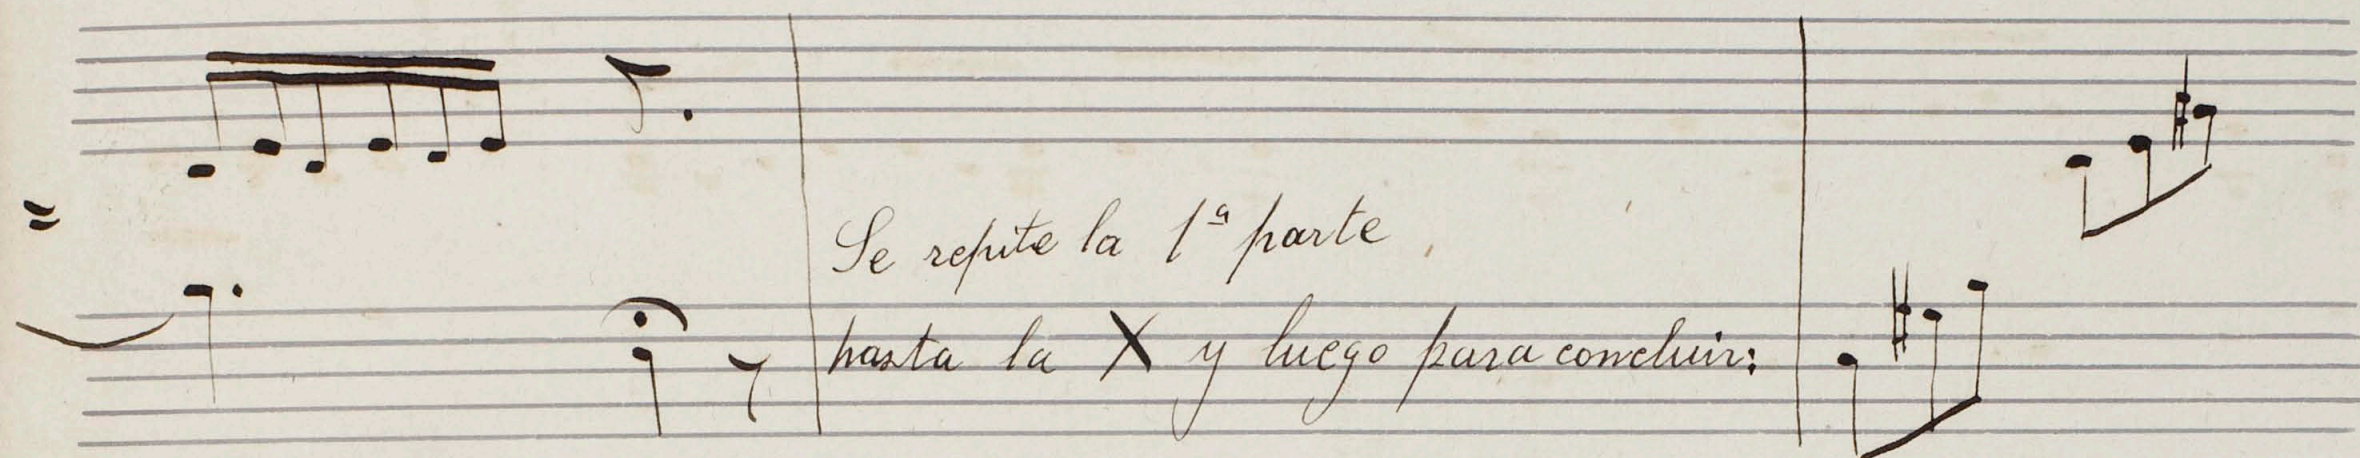 Se repite la 1ª parte
hasta la X y luego para concluir: